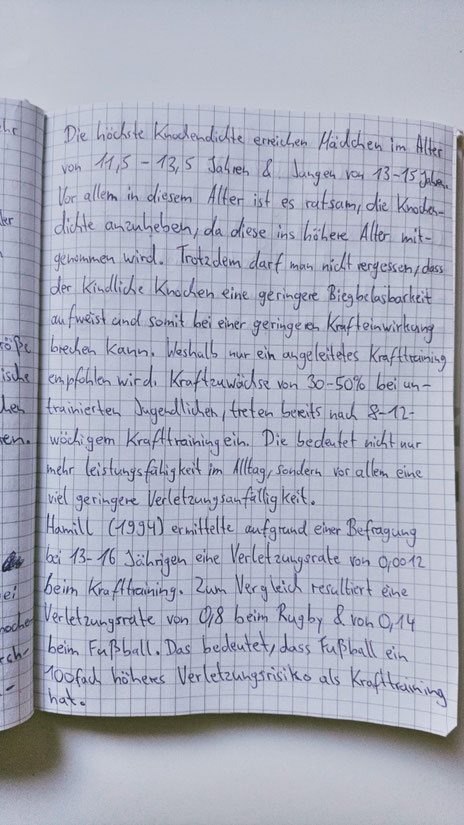 ehr
der
röße
ische
chen
ren.
ei
nochen
rch-
-
Die höchste Knochendichte erreichen Mädchen im Alter
von 11,5 - 13,5 Jahren & Jungen von 13-15 Jahren.
Vor allem in diesem Alter ist es ratsam, die Knochen-
dichte anzuheben, da diese ins höhere Alter mit-
genommen wird. Trotzdem darf man nicht vergessen, dass
der kindliche Knochen eine geringere Biegbelasbarkeit
aufweist und somit bei einer geringeren Krafteinwirkung
brechen kann. Weshalb nur ein angeleitetes Krafttraining
empfohlen wird. Kraftzuwächse von 30-50% bei un-
trainierten Jugendlichen, treten bereits nach 8-12-
wöchigem Krafttraining ein. Die bedeutet nicht nur
mehr leistungsfähigkeit im Alltag, sondern vor allem eine
viel geringere Verletzungsanfälligkeit.
Hamill (1994) ermittelte aufgrund einer Befragung
bei 13-16 Jährigen eine Verletzungsrate von 0,0012
beim Krafttraining. Zum Vergleich resultiert eine
Verletzungsrate von 0,8 beim Rugby & von 0,14
beim Fußball. Das bedeutet, dass Fußball ein
100fach höheres Verletzungsrisiko als Krafttraining
hat.